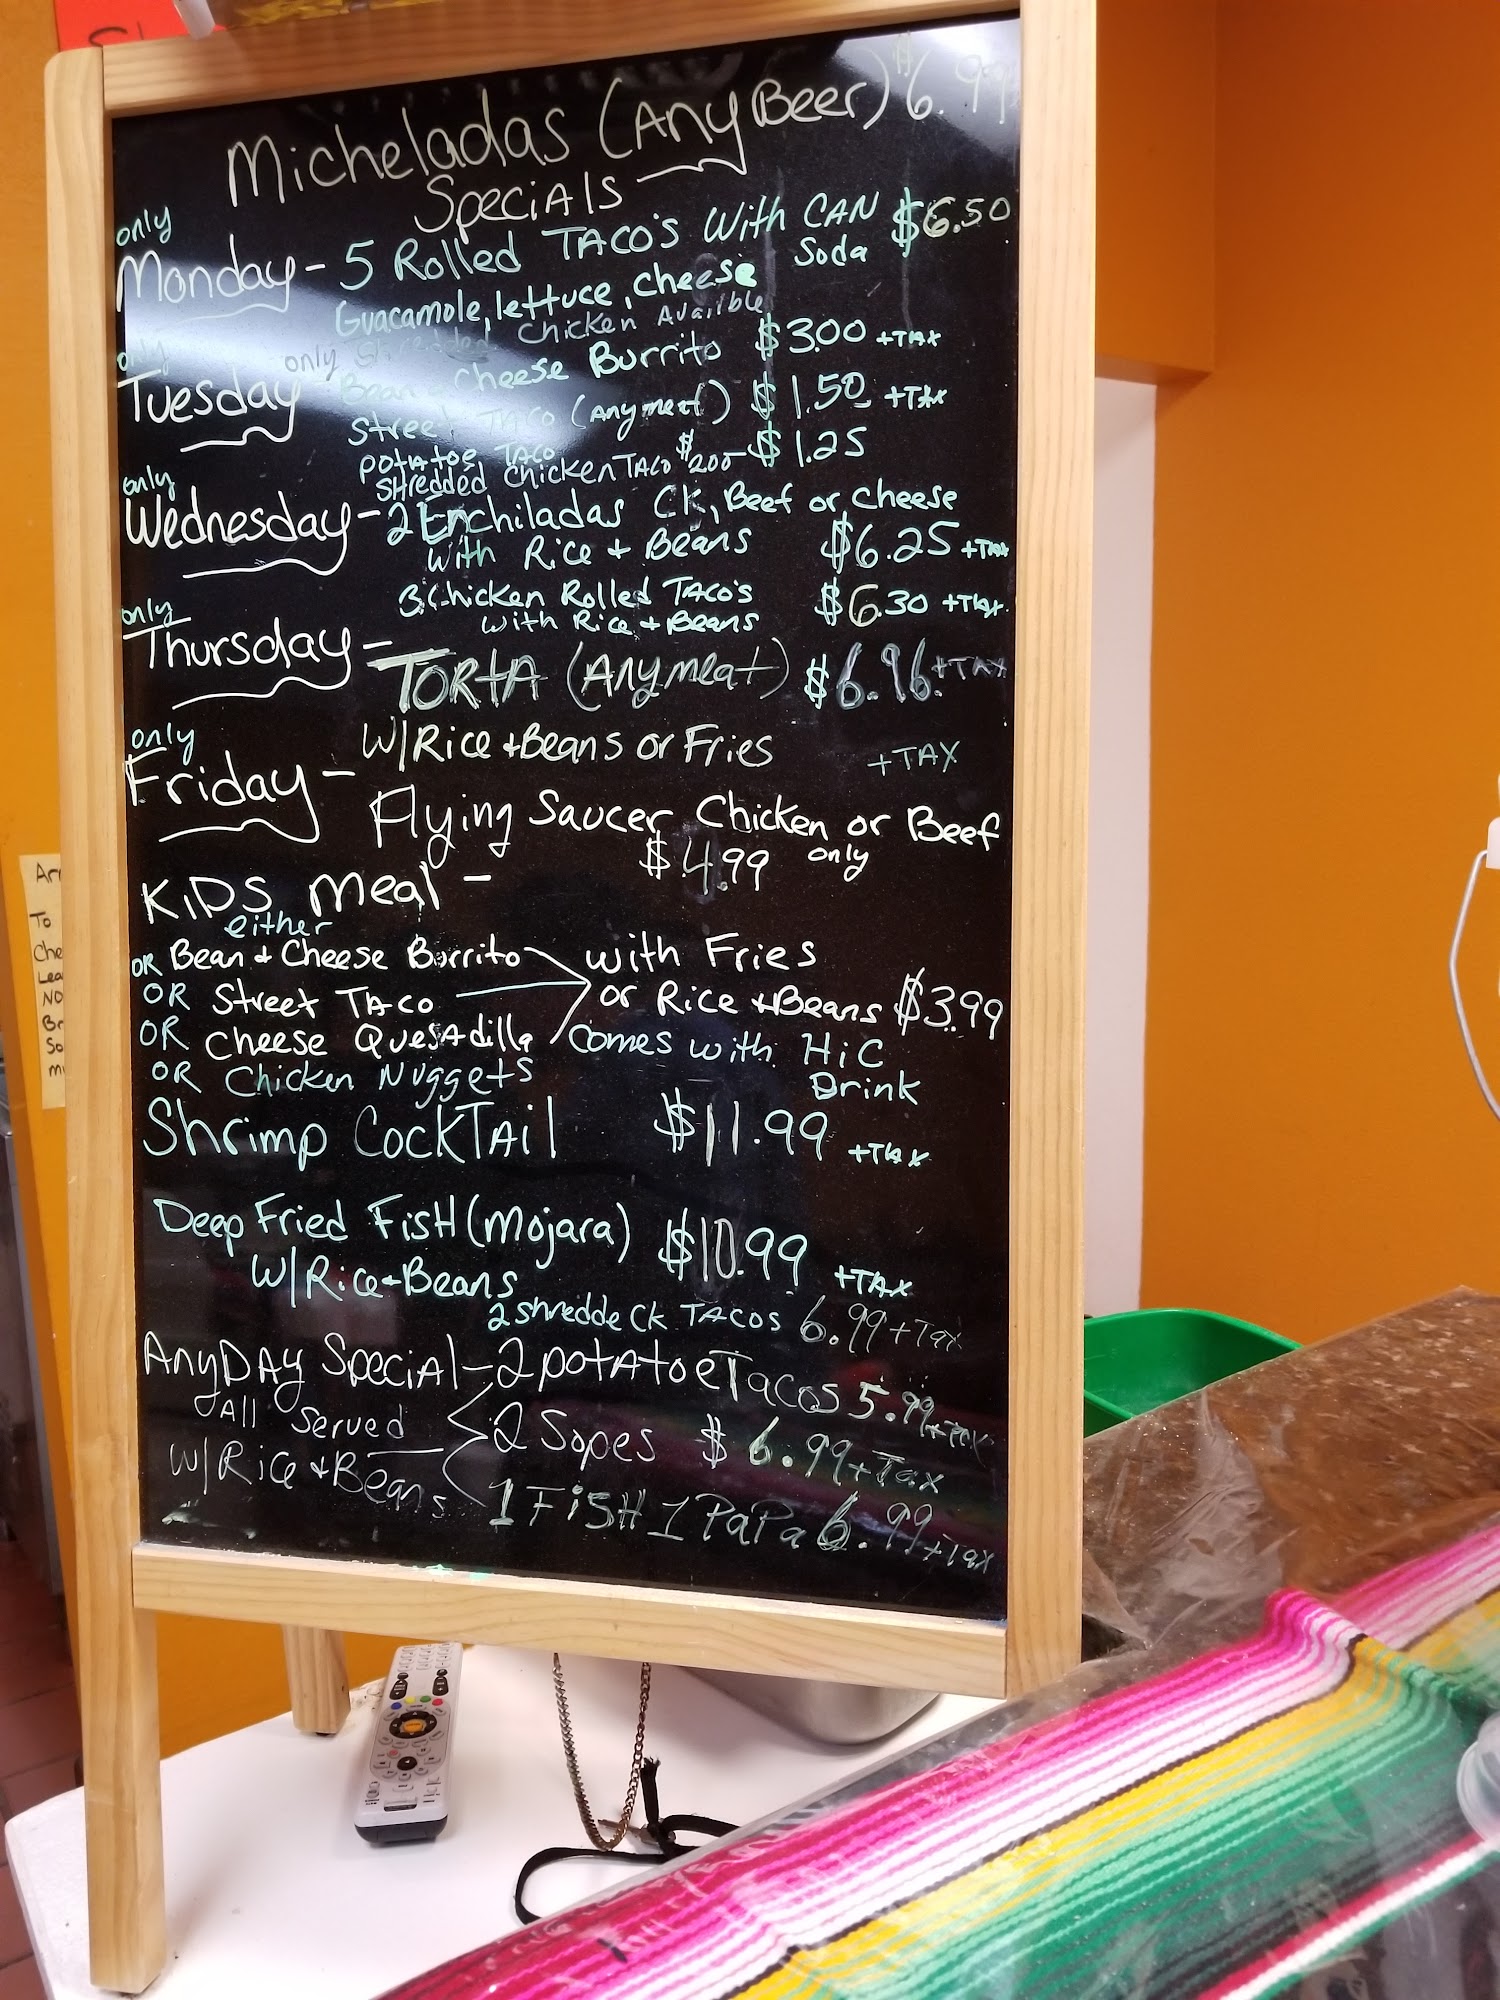 Micheladas (Any Beer) $6.99
Specials
only
Monday - 5 Rolled TACO's With CAN $6.50
Soda
Guacamole, lettuce, cheese
only Shredded Chicken Availble
only
Tuesday Bean Cheese Burrito $3.00 +TAX
Street TACO (Any meat) $1.50 +TAX
potatoe TACO $1.25
SHredded ChickenTACO $200
only
Wednesday - 2 Enchiladas CK, Beef or Cheese
With Rice + Beans $6.25 +TAX
3 Chicken Rolled TACO's $6.30 +TAX
with Rice + Beans
only
Thursday - TORTA (Anymeat) $6.96 +TAX
W/Rice +Beans or Fries +TAX
only
Friday - Flying Saucer Chicken or Beef
$4.99 only
KiDS meal -
either
OR Bean + Cheese Burrito with Fries
OR Street TACO or Rice +Beans $3.99
OR Cheese QuesAdilla Comes with HiC
OR Chicken Nuggets Drink
Shrimp CockTAil $11.99 +TAX
Deep Fried FisH (Mojara) $10.99
W/Rice+Beans +TAX
2 shredde CK TACOS 6.99 +Tax
AnyDAy SpeciAl - 2 potAtoe Tacos 5.99 +Tax
All Served 2 Sopes $6.99 +Tax
W/Rice + Beans 1 FiSH 1 PaPa 6.99 +Tax
Arr
To
Che
Lea
No
Br
So